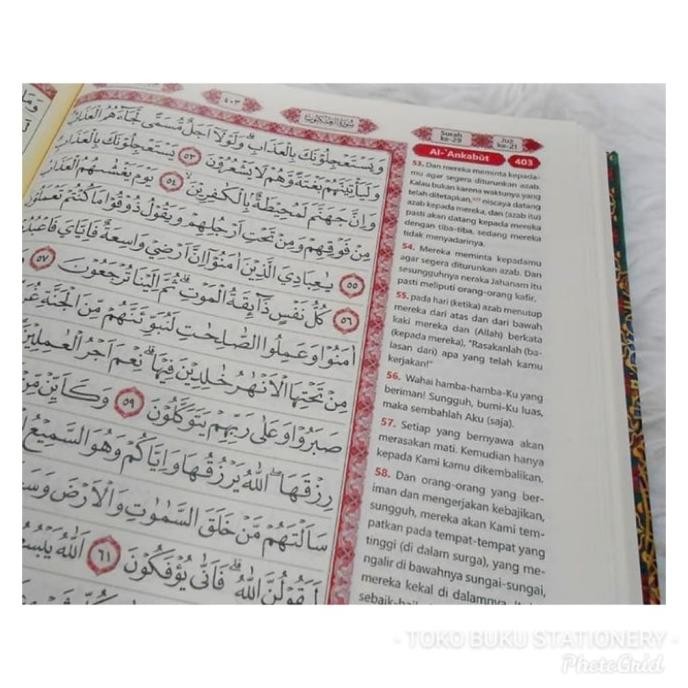 ٤٠٣
سُوْرَةُ الْعَنْكَبُوْتِ
وَيَسْتَعْجِلُوْنَكَ بِالْعَذَابِۗ وَلَوْلَآ اَجَلٌ مُّسَمًّى لَّجَاۤءَهُمُ الْعَذَابُ
وَلَيَأْتِيَنَّهُمْ بَغْتَةً وَّهُمْ لَا يَشْعُرُوْنَ ٥٣ يَسْتَعْجِلُوْنَكَ بِالْعَذَابِ
وَاِنَّ جَهَنَّمَ لَمُحِيْطَةٌ بِالْكٰفِرِيْنَ ٥٤ يَوْمَ يَغْشٰىهُمُ الْعَذَابُ
مِنْ فَوْقِهِمْ وَمِنْ تَحْتِ اَرْجُلِهِمْ وَيَقُوْلُ ذُوْقُوْا مَا كُنْتُمْ تَعْمَلُوْنَ
٥٥ يٰعِبَادِيَ الَّذِيْنَ اٰمَنُوْٓا اِنَّ اَرْضِيْ وَاسِعَةٌ فَاِيَّايَ
٥٦ كُلُّ نَفْسٍ ذَاۤىِٕقَةُ الْمَوْتِۗ ثُمَّ اِلَيْنَا تُرْجَعُوْنَ ٥٧
اٰمَنُوْا وَعَمِلُوا الصّٰلِحٰتِ لَنُبَوِّئَنَّهُمْ مِّنَ الْجَنَّةِ
مِنْ تَحْتِهَا الْاَنْهٰرُ خٰلِدِيْنَ فِيْهَاۗ نِعْمَ اَجْرُ الْعٰمِلِيْنَ
صَبَرُوْا وَعَلٰى رَبِّهِمْ يَتَوَكَّلُوْنَ ٥٩ وَكَاَيِّنْ مِّنْ
رِزْقَهَاۖ اَللّٰهُ يَرْزُقُهَا وَاِيَّاكُمْ وَهُوَ السَّمِيْعُ
سَاَلْتَهُمْ مَّنْ خَلَقَ السَّمٰوٰتِ وَالْاَرْضَ
لَيَقُوْلُنَّ اللّٰهُ ۗفَاَنّٰى يُؤْفَكُوْنَ ٦١ اَللّٰهُ
Surah ke-29
Juz ke-21
Al-'Ankabūt 403
53. Dan mereka meminta kepada-
mu agar segera diturunkan azab.
Kalau bukan karena waktunya yang
telah ditetapkan, niscaya datang
azab kepada mereka, dan (azab itu)
pasti akan datang kepada mereka
dengan tiba-tiba, sedang mereka
tidak menyadarinya.
54. Mereka meminta kepadamu
agar segera diturunkan azab. Dan
sesungguhnya neraka Jahanam itu
pasti meliputi orang-orang kafir,
55. pada hari (ketika) azab menutup
mereka dari atas dan dari bawah
kaki mereka dan (Allah) berkata
(kepada mereka), "Rasakanlah (ba-
lasan dari) apa yang telah kamu
kerjakan!"
56. Wahai hamba-hamba-Ku yang
beriman! Sungguh, bumi-Ku luas,
maka sembahlah Aku (saja).
57. Setiap yang bernyawa akan
merasakan mati. Kemudian hanya
kepada Kami kamu dikembalikan.
58. Dan orang-orang yang ber-
iman dan mengerjakan kebajikan,
sungguh, mereka akan Kami tem-
patkan pada tempat-tempat yang
tinggi (di dalam surga), yang me-
ngalir di bawahnya sungai-sungai,
mereka kekal di dalamnya.
- TOKO BUKU STATIONERY -
PhotoGrid